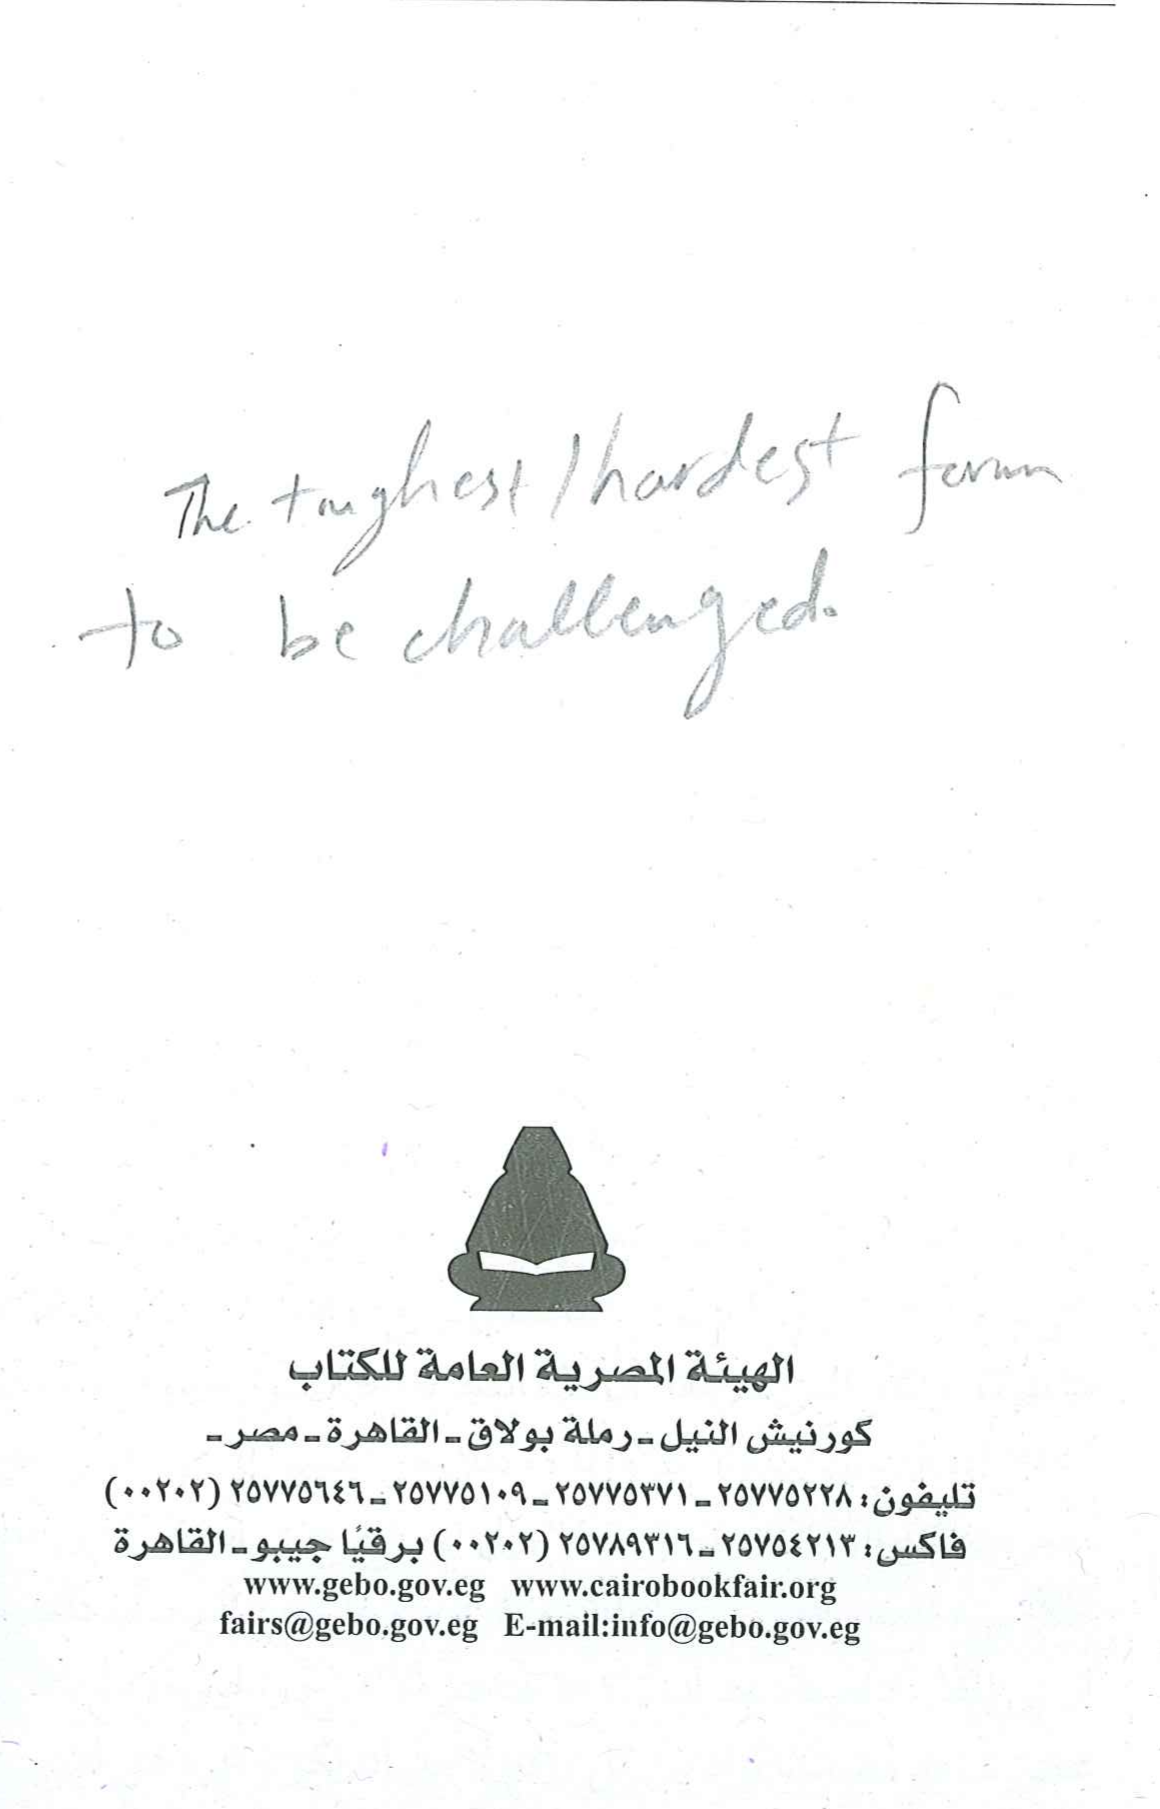 The toughest / hardest form
to be challenged.
الهيئة المصرية العامة للكتاب
كورنيش النيل ـ رملة بولاق ـ القاهرة ـ مصر ـ
تليفون: ٢٥٧٧٥٢٢٨ ـ ٢٥٧٧٥٣٧١ ـ ٢٥٧٧٥١٠٩ ـ ٢٥٧٧٥٦٤٦ (٠٠٢٠٢)
فاكس: ٢٥٧٥٤٢١٣ ـ ٢٥٧٨٩٣١٦ (٠٠٢٠٢) برقيًا جيبو ـ القاهرة
www.gebo.gov.eg www.cairobookfair.org
fairs@gebo.gov.eg E-mail:info@gebo.gov.eg